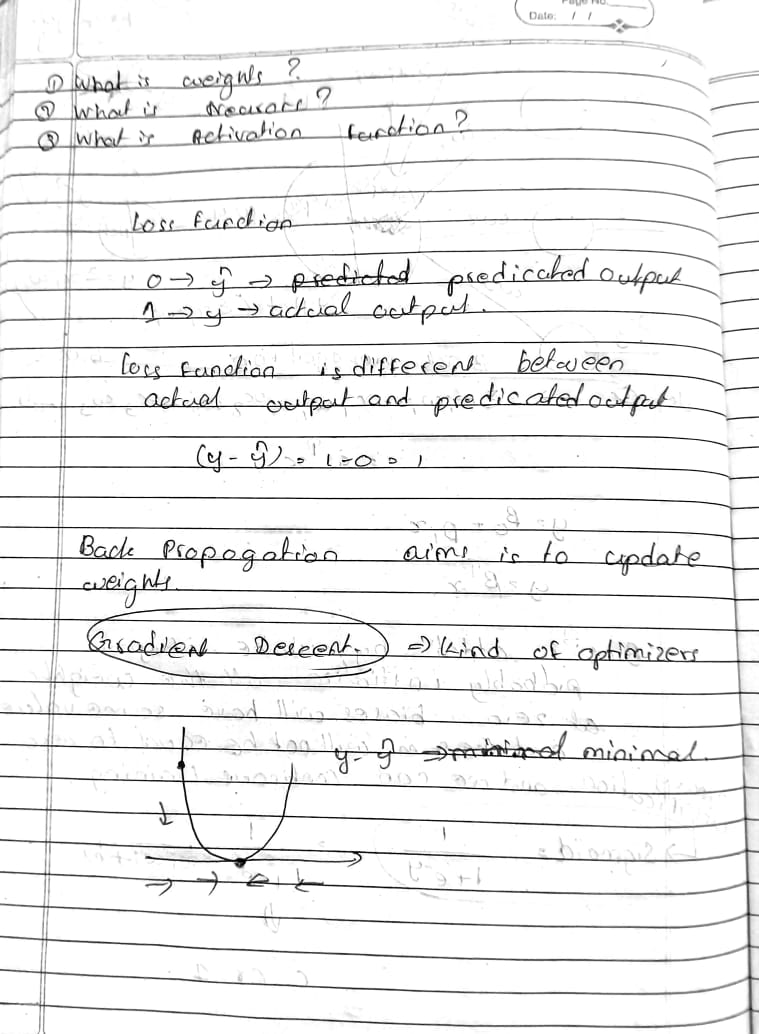 Page No.
Date: / /
① What is weights ?
② What is Neurons ?
③ What is Activation function ?
Loss function
0 → ŷ → predicted predicated output
1 → y → actual output.
Loss function is different between
actual output and predicated output
(y - ŷ) = 1-0 = 1
Back Propogation aims is to update
weights.
Gradient Descent. ⇒ kind of optimizers
y - ŷ ⇒ minimal minimal.